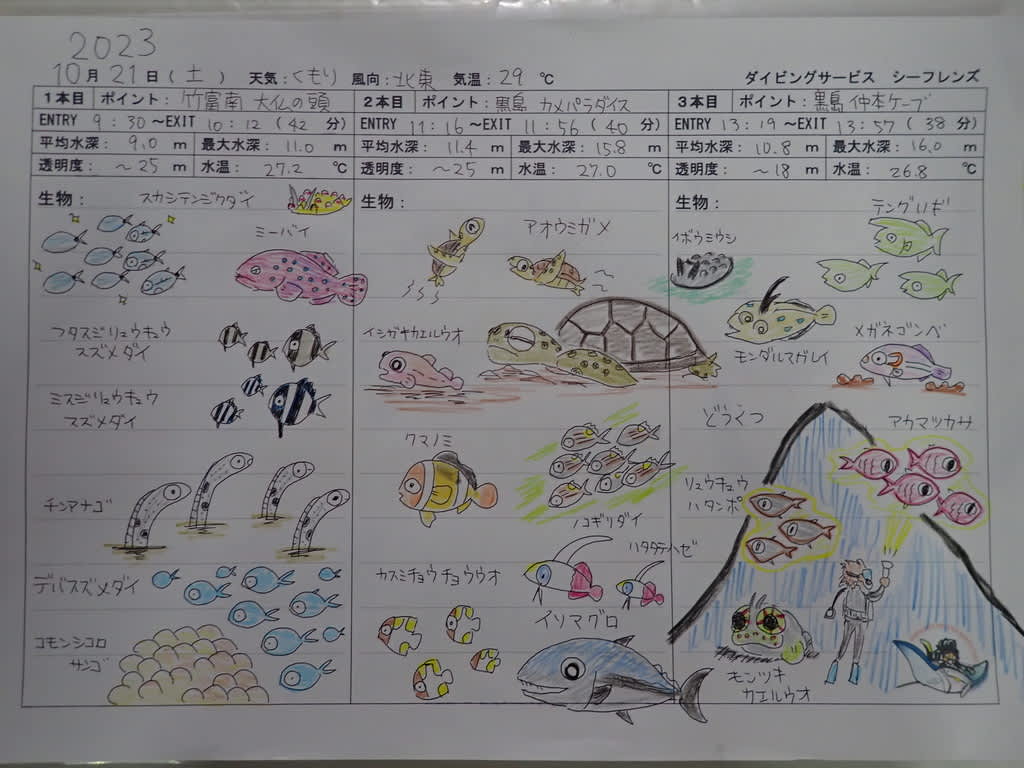 2023
10月21日(土) 天気:くもり 風向:北東 気温:29℃ ダイビングサービス シーフレンズ
1本目 ポイント:竹富南 大仏の頭
ENTRY 9:30~EXIT 10:12(42分)
平均水深:9.0m 最大水深:11.0m
透明度:~25m 水温:27.2℃
生物:
スカシテンジクダイ
ミーバイ
フタスジリュウキュウ
スズメダイ
ミスジリュウキュウ
スズメダイ
チンアナゴ
デバスズメダイ
コモンシコロ
サンゴ
2本目 ポイント:黒島 カメパラダイス
ENTRY 11:16~EXIT 11:56(40分)
平均水深:11.4m 最大水深:15.8m
透明度:~25m 水温:27.0℃
生物:
アオウミガメ
イシガキカエルウオ
クマノミ
ノコギリダイ
ハタタテハゼ
カスミチョウチョウウオ
イソマグロ
3本目 ポイント:黒島 仲本ケーブ
ENTRY 13:19~EXIT 13:57(38分)
平均水深:10.8m 最大水深:16.0m
透明度:~18m 水温:26.8℃
生物:
テングハギ
イボウミウシ
モンダルマガレイ
メガネゴンベ
どうくつ
アカマツカサ
リュウキュウ
ハタンポ
モンツキ
カエルウオ